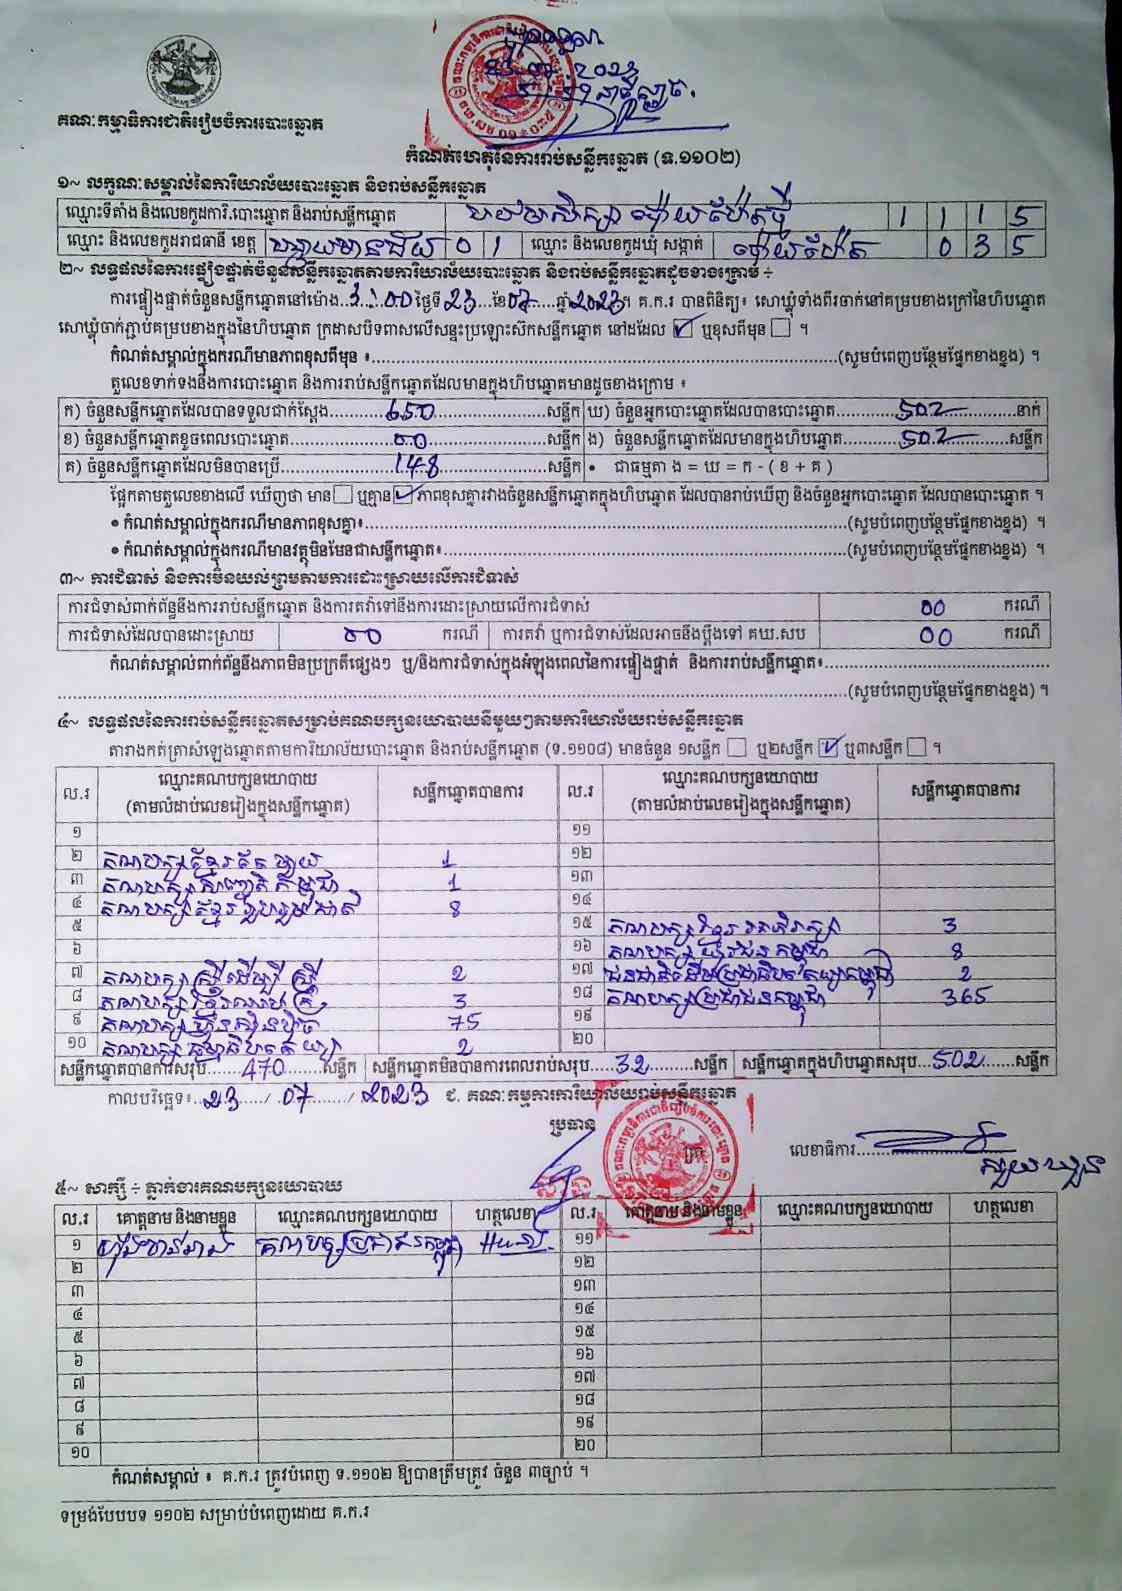 គណៈកម្មាធិការជាតិរៀបចំការបោះឆ្នោត
កំណត់ហេតុនៃការរាប់សន្លឹកឆ្នោត (ទ.១១០២)
១~ លក្ខណៈសម្គាល់នៃការិយាល័យបោះឆ្នោត និងរាប់សន្លឹកឆ្នោត
ឈ្មោះទីតាំង និងលេខកូដការិ.បោះឆ្នោត និងរាប់សន្លឹកឆ្នោត 1 1 1 5
ឈ្មោះ និងលេខកូដរាជធានី ខេត្ត បន្ទាយមានជ័យ 0 1 ឈ្មោះ និងលេខកូដឃុំ សង្កាត់ ប៉ោយប៉ែត 0 3 5
២~ លទ្ធផលនៃការផ្ទៀងផ្ទាត់ចំនួនសន្លឹកឆ្នោតតាមការិយាល័យបោះឆ្នោត និងរាប់សន្លឹកឆ្នោតដូចខាងក្រោម ÷
ការផ្ទៀងផ្ទាត់ចំនួនសន្លឹកឆ្នោតនៅម៉ោង 3:00 ថ្ងៃទី 23 ខែ 07 ឆ្នាំ 2023។ គ.ក.រ បានពិនិត្យ៖ សោឃ្លុំទាំងពីរចាក់នៅគម្របខាងក្រៅនៃហិបឆ្នោត
សោឃ្លុំចាក់ភ្ជាប់គម្របខាងក្នុងនៃហិបឆ្នោត ក្រដាសបិទពាសលើសន្ទះប្រឡោះស៊កសន្លឹកឆ្នោត នៅដដែល ☑ ឬខុសពីមុន ☐ ។
កំណត់សម្គាល់ក្នុងករណីមានភាពខុសពីមុន ៖ (សូមបំពេញបន្ថែមផ្នែកខាងខ្នង) ។
តួលេខទាក់ទងនឹងការបោះឆ្នោត និងការរាប់សន្លឹកឆ្នោតដែលមានក្នុងហិបឆ្នោតមានដូចខាងក្រោម ៖
ក) ចំនួនសន្លឹកឆ្នោតដែលបានទទួលជាក់ស្តែង 650 សន្លឹក ឃ) ចំនួនអ្នកបោះឆ្នោតដែលបានបោះឆ្នោត 502 នាក់
ខ) ចំនួនសន្លឹកឆ្នោតខូចពេលបោះឆ្នោត 00 សន្លឹក ង) ចំនួនសន្លឹកឆ្នោតដែលមានក្នុងហិបឆ្នោត 502 សន្លឹក
គ) ចំនួនសន្លឹកឆ្នោតដែលមិនបានប្រើ 148 សន្លឹក • ជាធម្មតា ង = ឃ = ក - ( ខ + គ )
ផ្អែកតាមតួលេខខាងលើ ឃើញថា មាន ☐ ឬគ្មាន ☑ ភាពខុសគ្នារវាងចំនួនសន្លឹកឆ្នោតក្នុងហិបឆ្នោត ដែលបានរាប់ឃើញ និងចំនួនអ្នកបោះឆ្នោត ដែលបានបោះឆ្នោត ។
• កំណត់សម្គាល់ក្នុងករណីមានភាពខុសគ្នា៖ (សូមបំពេញបន្ថែមផ្នែកខាងខ្នង) ។
• កំណត់សម្គាល់ក្នុងករណីមានវត្ថុមិនមែនជាសន្លឹកឆ្នោត៖ (សូមបំពេញបន្ថែមផ្នែកខាងខ្នង) ។
៣~ ការជំទាស់ និងការមិនយល់ព្រមតាមការដោះស្រាយលើការជំទាស់
ការជំទាស់ពាក់ព័ន្ធនឹងការរាប់សន្លឹកឆ្នោត និងការតវ៉ាទៅនឹងការដោះស្រាយលើការជំទាស់ 00 ករណី
ការជំទាស់ដែលបានដោះស្រាយ 00 ករណី ការតវ៉ា ឬការជំទាស់ដែលអាចនឹងប្តឹងទៅ គឃ.សប 00 ករណី
កំណត់សម្គាល់ពាក់ព័ន្ធនឹងភាពមិនប្រក្រតីផ្សេងៗ ឬ/និងការជំទាស់ក្នុងអំឡុងពេលនៃការផ្ទៀងផ្ទាត់ និងការរាប់សន្លឹកឆ្នោត៖
(សូមបំពេញបន្ថែមផ្នែកខាងខ្នង) ។
៤~ លទ្ធផលនៃការរាប់សន្លឹកឆ្នោតសម្រាប់គណបក្សនយោបាយនីមួយៗតាមការិយាល័យរាប់សន្លឹកឆ្នោត
តារាងកត់ត្រាសំឡេងឆ្នោតតាមការិយាល័យបោះឆ្នោត និងរាប់សន្លឹកឆ្នោត (ទ.១១០៨) មានចំនួន ១សន្លឹក ☐ ឬ២សន្លឹក ☑ ឬ៣សន្លឹក ☐ ។
ល.រ ឈ្មោះគណបក្សនយោបាយ (តាមលំដាប់លេខរៀងក្នុងសន្លឹកឆ្នោត) សន្លឹកឆ្នោតបានការ ល.រ ឈ្មោះគណបក្សនយោបាយ (តាមលំដាប់លេខរៀងក្នុងសន្លឹកឆ្នោត) សន្លឹកឆ្នោតបានការ
១ ១១
២ 1 ១២
៣ 1 ១៣
៤ 8 ១៤
៥ ១៥ 3
៦ ១៦ គណបក្សយុវជនកម្ពុជា 8
៧ គណបក្សស្ត្រីដើម្បីស្ត្រី 2 ១៧ 2
៨ 3 ១៨ គណបក្សប្រជាជនកម្ពុជា 365
៩ គណបក្សហ្វ៊ុនស៊ិនប៉ិច 75 ១៩
១០ 2 ២០
សន្លឹកឆ្នោតបានការសរុប 470 សន្លឹក សន្លឹកឆ្នោតមិនបានការពេលរាប់សរុប 32 សន្លឹក សន្លឹកឆ្នោតក្នុងហិបឆ្នោតសរុប 502 សន្លឹក
កាលបរិច្ឆេទ៖ 23 / 07 / 2023 ជ. គណៈកម្មការការិយាល័យរាប់សន្លឹកឆ្នោត
ប្រធាន
លេខាធិការ
៥~ សាក្សី ÷ ភ្នាក់ងារគណបក្សនយោបាយ
ល.រ គោត្តនាម និងនាមខ្លួន ឈ្មោះគណបក្សនយោបាយ ហត្ថលេខា ល.រ គោត្តនាម និងនាមខ្លួន ឈ្មោះគណបក្សនយោបាយ ហត្ថលេខា
១ គណបក្សប្រជាជនកម្ពុជា ១១
២ ១២
៣ ១៣
៤ ១៤
៥ ១៥
៦ ១៦
៧ ១៧
៨ ១៨
៩ ១៩
១០ ២០
កំណត់សម្គាល់ ៖ គ.ក.រ ត្រូវបំពេញ ទ.១១០២ ឱ្យបានត្រឹមត្រូវ ចំនួន ៣ច្បាប់ ។
ទម្រង់បែបបទ ១១០២ សម្រាប់បំពេញដោយ គ.ក.រ